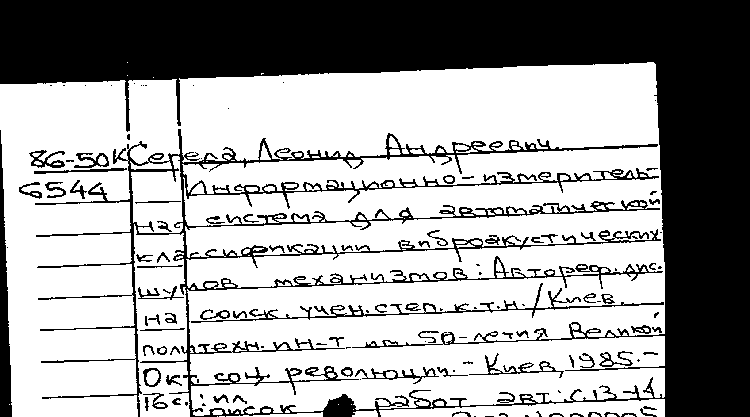 86-50К Середа, Леонид Андреевич
6544 Информационно-измеритель-
ная система для автоматической
классификации виброакустических
шумов механизмов: Автореф. дис.
на соиск. учен. степ. к.т.н. / Киев.
политехн. ин-т им. 50-летия Великой
Окт. соц. революции. - Киев, 1985. -
16 с.: ил.
Список работ авт.: с. 13-14.